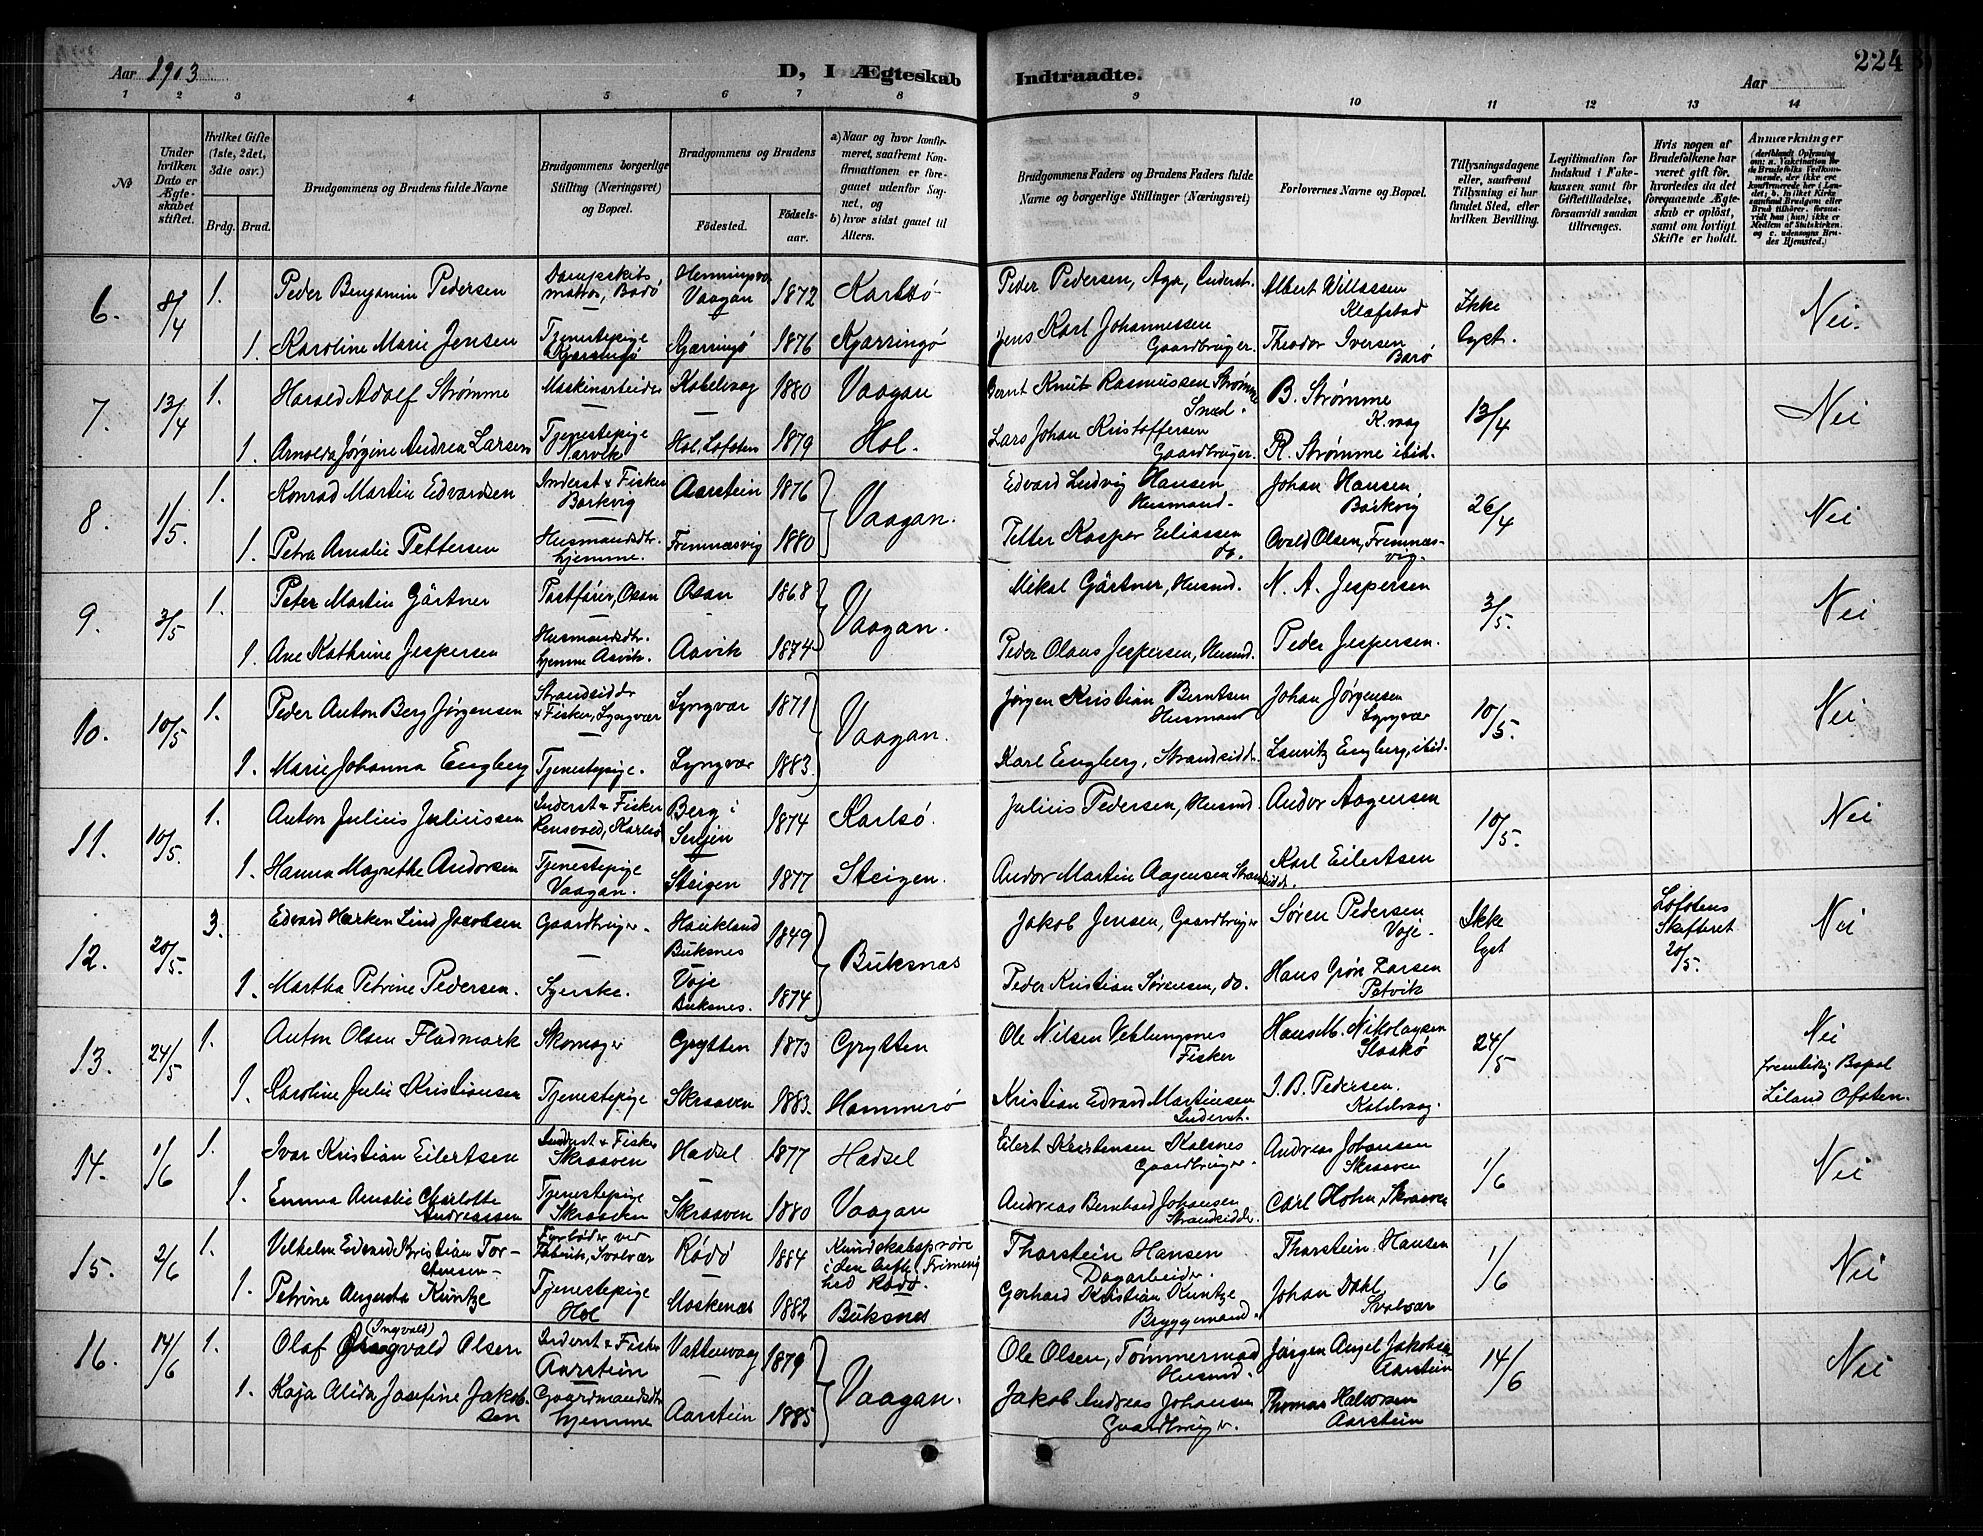 224
Aar 1903
D, I Ægteskab Indtraadte.
Aar
1 2 3 4 5 6 7 8 9 10 11 12 13 14
No
Under hvilken Dato er Ægteskabet stiftet.
Hvilket Gifte (1ste, 2det, 3die osv.)
Brdg. Brud.
Brudgommens og Brudens fulde Navne
Brudgommens borgerlige Stilling (Næringsvei) og Bopæl.
Brudgommens og Brudens
Fødested.
Fødselsaar.
a) Naar og hvor konfirmeret, saafremt Konfirmationen er foregaaet udenfor Sognet, og
b) hvor sidst gaaet til Alters.
Brudgommens Faders og Brudens Faders fulde Navne og borgerlige Stillinger (Næringsvei)
Forlovernes Navne og Bopæl.
Tillysningsdagene eller, saafremt Tillysning ei har fundet Sted, efter hvilken Bevilling.
Legitimation for Indskud i Enkekassen samt for Giftetilladelse, forsaavidt saadan tiltrænges.
Hvis nogen af Brudefolkene har været gift før, hvorledes da det foregaaende Ægteskab er opløst, samt om lovligt Skifte er holdt.
Anmærkninger
6. 8/4 1. Peder Benjamin Pedersen Dampskibsmatros, Bodø Vaagan 1872 Karlsö Peder Pedersen, Aga, Inderst. Albert Willassen Klæfstad Ikke Nei.
1. Karoline Marie Jensen Tjenestepige Kjærringø Kjærringø 1876 Kjærringø Jens Karl Johannessen Gaardbruger. Theodor Iversen Barø lyst.
7. 13/4 1. Harald Adolf Strømme Maskinarbeider Kabelvaag 1880 Vaagan Bernt Knut Rasmussen Strømme Smed. B. Strømme K.vaag 13/4 Nei
1. Arnolda Jørgine Andrea Larsen Tjenestepige Narvik Hol, Lofoten 1879 Hol. Lars Johan Kristoffersen Gaardbruger. R. Strømme ibid.
8. 1/5 1. Konrad Martin Edvardsen Inderst & Fisker Barkvig Aarstein 1876 Vaagan. Edvard Ludvig Hansen Husmand. Johan Hansen, Barkvig 26/4 Nei
1. Petra Amalie Pettersen Husmandsdtr. hjemme. Fremnæsvig 1880 Petter Kaspar Eliassen do. Ovald Olsen, Fremnæsvig.
9. 3/5 1. Peter Martin Gärtner Postfører, Osan Osan 1868 Vaagan. Mikal Gärtner, Husmd. N. A. Jespersen 3/5. Nei
1. Ane Kathrine Jespersen Husmandsdtr. hjemme Aavik. Aavik 1874 Peder Olaus Jespersen, Husmd. Peder Jespersen.
10. 10/5 1. Peder Anton Berg Jørgensen Strandsidder & Fisker, Lyngvær Lyngvær 1871 Vaagan. Jørgen Kristian Berntsen Husmand Johan Jørgensen Lyngvær 10/5. Nei
1. Marie Johanna Engberg Tjenestepige. Lyngvær 1883. Karl Engberg, Strandsidd. Lauritz Engberg, ibid.
11. 10/5. 1. Anton Julius Juliussen Inderst & Fisker Rensvold, Karlsö Berg i Senjen 1874 Karlsö. Julius Pedersen, Husmd Andor Aagensen 10/5. Nei
1. Hanna Magrethe Andorsen Tjenestepige Vaagan. Steigen 1877 Steigen. Andor Martin Aagensen Strandsidd. Karl Eilertsen
12. 20/5. 3. Edvard Hærken Lind Jacobsen Gaardbruger. Haukland Buksnes 1849 Buksnæs Jakob Jensen, Gaardbruger Søren Pedersen Voje. Ikke lyst Lofotens Skifteret 20/5. Nei
1. Martha Petrine Pedersen. Syerske. Voje Buksnes. 1874 Peder Kristian Sørensen, do. Hans Grön Larsen Petvik
13. 24/5 1. Anton Olsen Fladmark Skomager Grytten 1873 Grytten Ole Nilsen Veblungsnes Fisker Hans M. Nikolaysen Skaskö 24/5 Nei
1. Karoline Julie Kristiansen Tjenestepige Skraaven 1883. Hammerö Kristian Edvard Martinsen Inderst. I. B. Pedersen. Kabelvaag. Fremtidig Bopæl Liland Ofoten.
14. 1/6 1. Ivar Kristian Eilertsen Inderst & Fisker Skraaven Hadsel 1877 Hadsel Eilert Kristensen Kalsnes Gaardbruger. Andreas Johansen Skraaven 1/6 Nei
1. Emma Amalie Charlotte Andreassen Tjenestepige Skraaven Skraaven 1880 Vaagan Andreas Bernhard Johansen Strandsidder. Carl Holm, Skraaven
15. 2/6 1. Vilhelm Edvard Kristian Torstensen Fyrbøder ved Fabrik, Svolvær Rödö 1884 Kundskabsprøve i den Frimenighed Rödö. Thorstein Hansen Dagarbeider. Thorstein Hansen 1/6 Nei
1. Petrine Augusta Kuntze Tjenestepige Hol Moskenæs 1882 Buksnæs Gerhard Kristian Kuntze Bryggemand. Johan Dahl Svolvær
16. 14/6 1. Olaf (Ingvald) Olsen Inderst & Fisker Aarstein Vattervaag 1879 Vaagan. Ole Olsen, Tömmermand Husmd. Jørgen Angel Jakobsen Aarstein 14/6 Nei
1. Kaja Alida Josefine Jakobsen Gaardmandsdtr hjemme Aarstein 1885 Jakob Andreas Johansen Gaardbruger. Thomas Halvorsen Aarstein